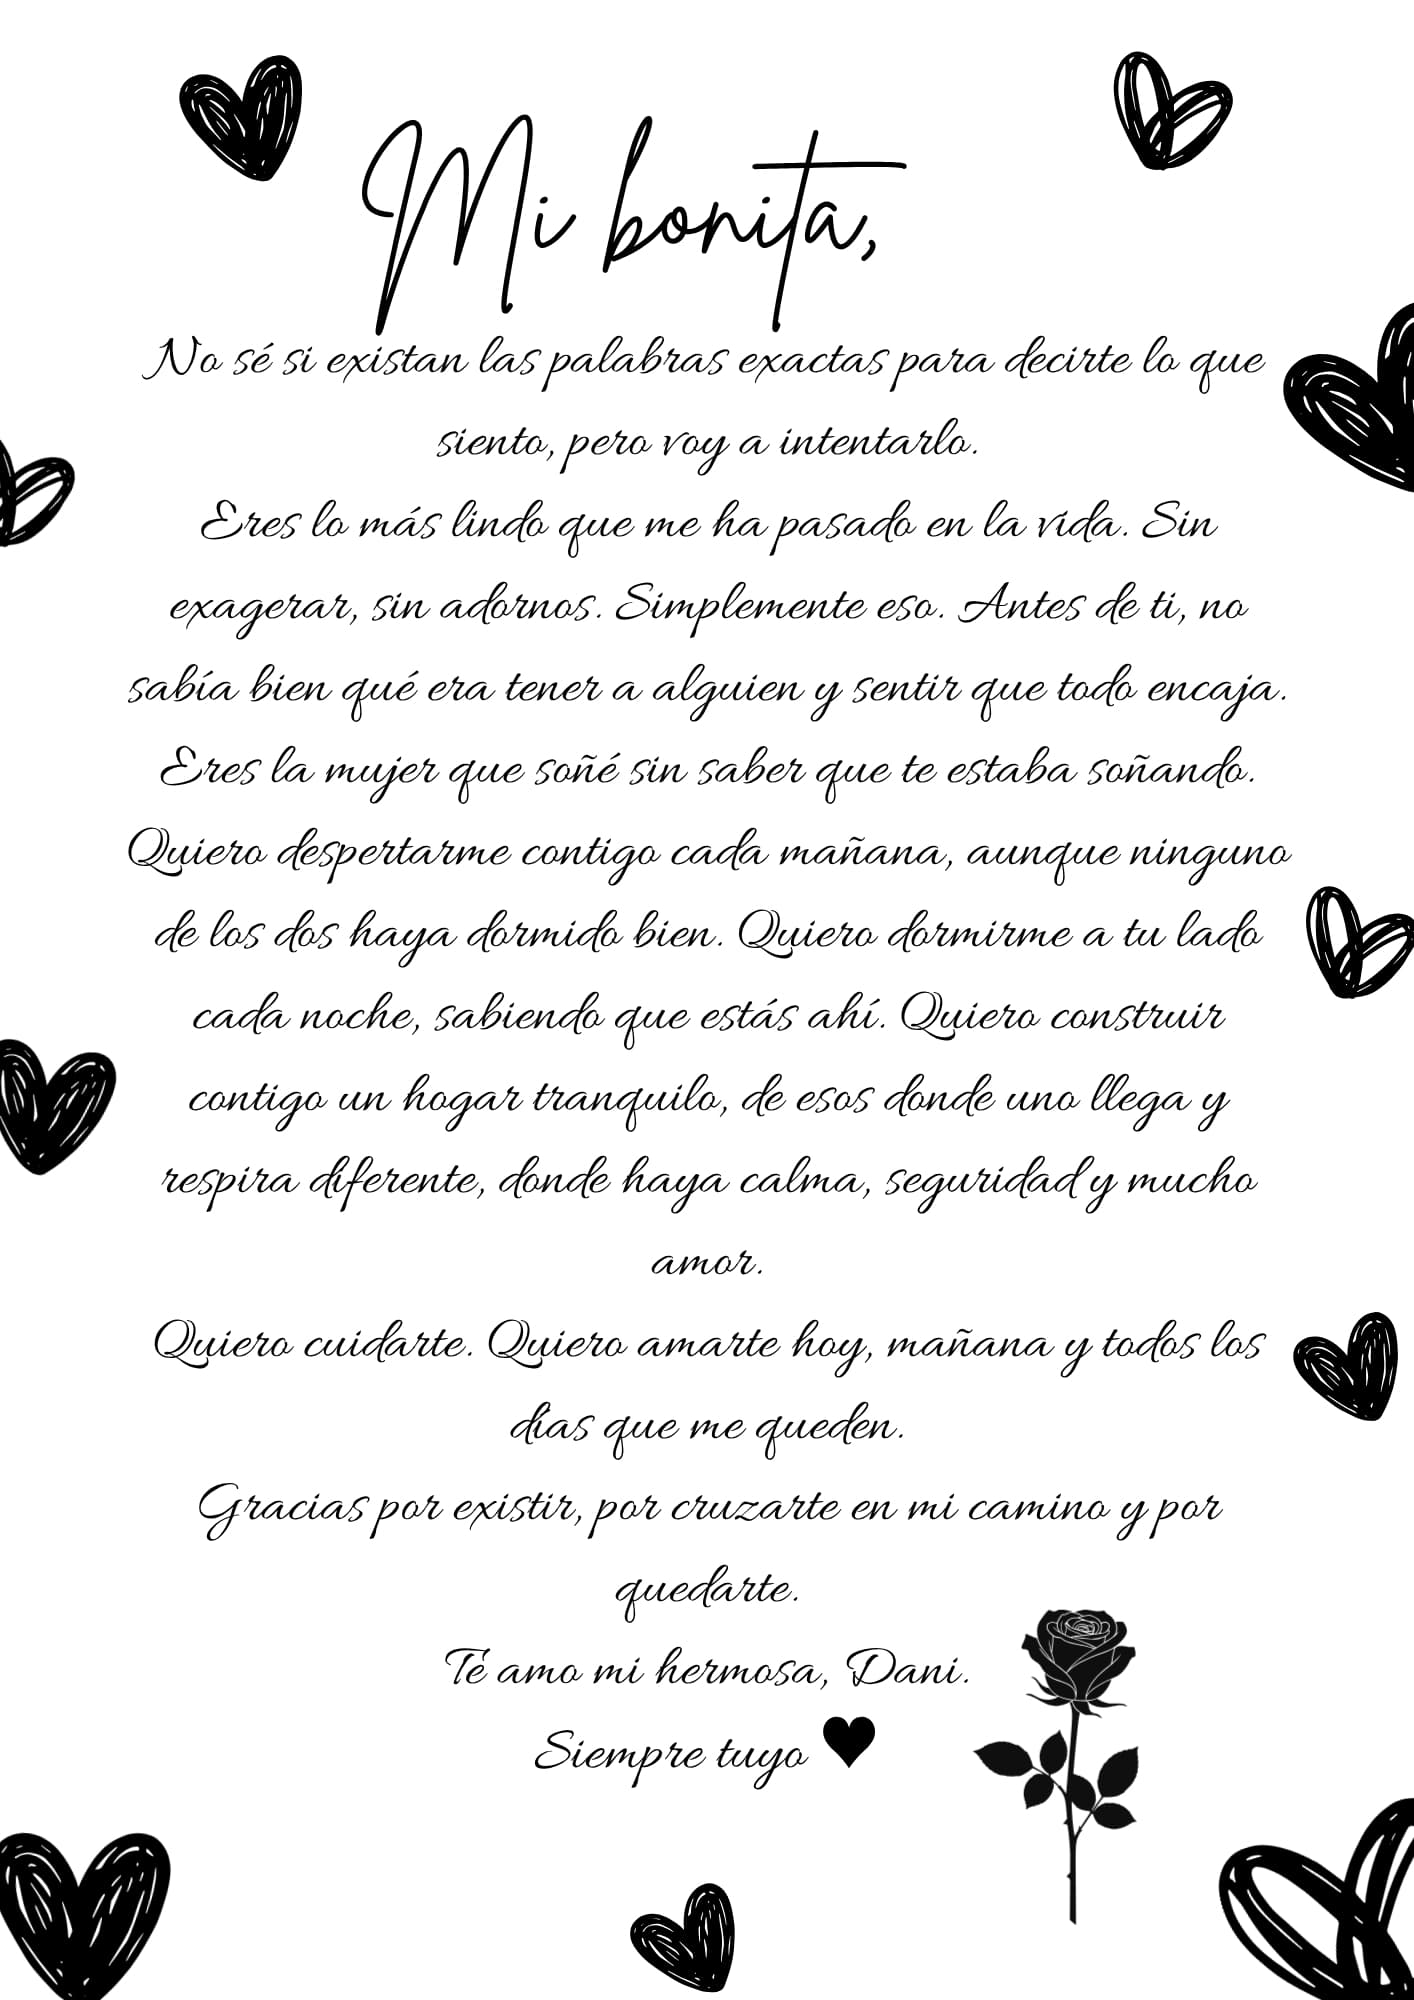 Mi bonita,
No sé si existan las palabras exactas para decirte lo que
siento, pero voy a intentarlo.
Eres lo más lindo que me ha pasado en la vida. Sin
exagerar, sin adornos. Simplemente eso. Antes de ti, no
sabía bien qué era tener a alguien y sentir que todo encaja.
Eres la mujer que soñé sin saber que te estaba soñando.
Quiero despertarme contigo cada mañana, aunque ninguno
de los dos haya dormido bien. Quiero dormirme a tu lado
cada noche, sabiendo que estás ahí. Quiero construir
contigo un hogar tranquilo, de esos donde uno llega y
respira diferente, donde haya calma, seguridad y mucho
amor.
Quiero cuidarte. Quiero amarte hoy, mañana y todos los
días que me queden.
Gracias por existir, por cruzarte en mi camino y por
quedarte.
Té amo mi hermosa, Dani.
Siempre tuyo ♥